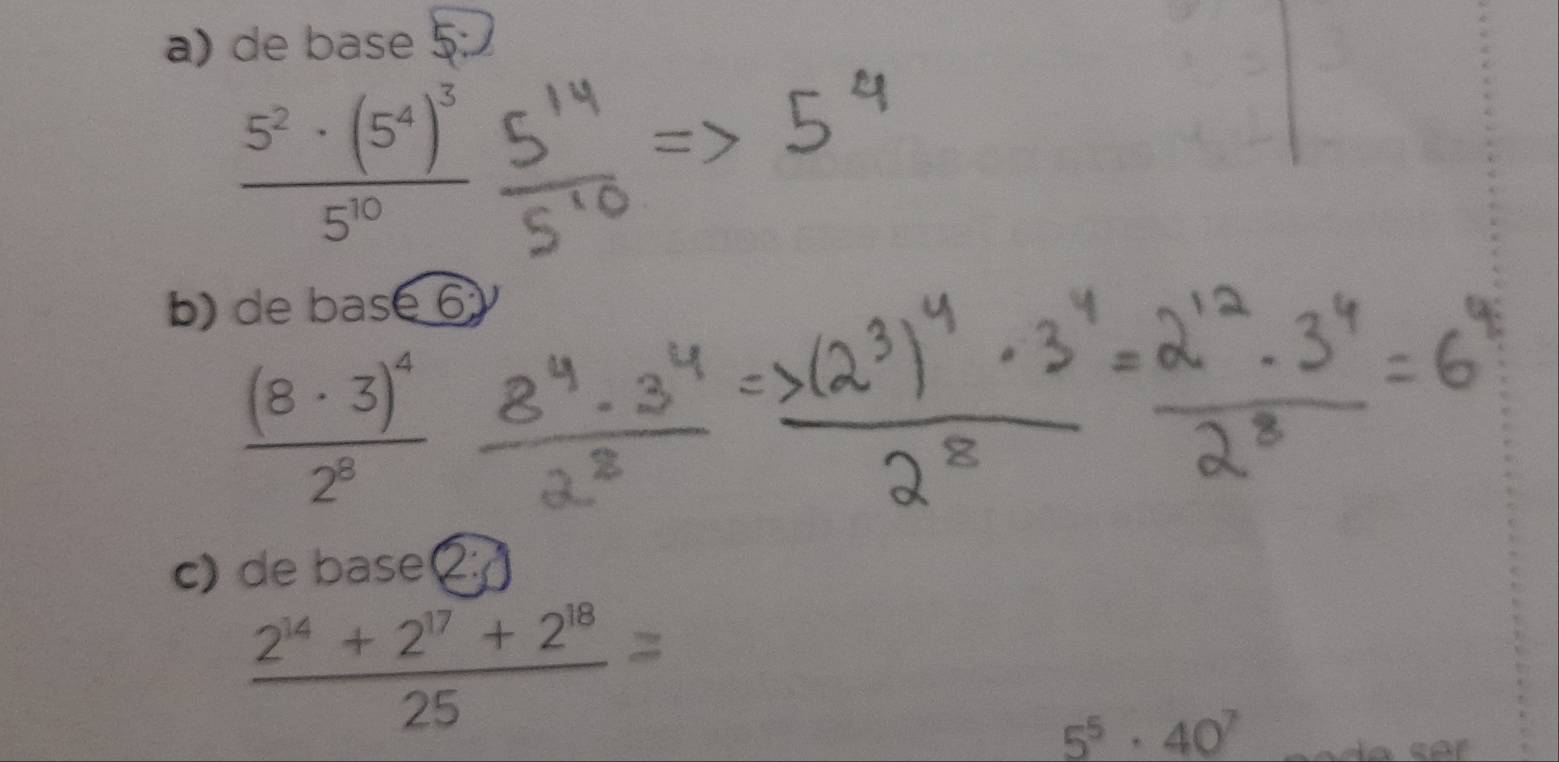 a) de base 5:
5² · (5⁴)³ / 5¹⁰   5¹⁴ / 5¹⁰ => 5⁴
b) de base 6:
(8 · 3)⁴ / 2⁸   8⁴ · 3⁴ / 2⁸ => (2³)⁴ · 3⁴ / 2⁸ = 2¹² · 3⁴ / 2⁸ = 6⁴
c) de base 2:
2¹⁴ + 2¹⁷ + 2¹⁸ / 25 =
5⁵ · 40⁷ pode ser